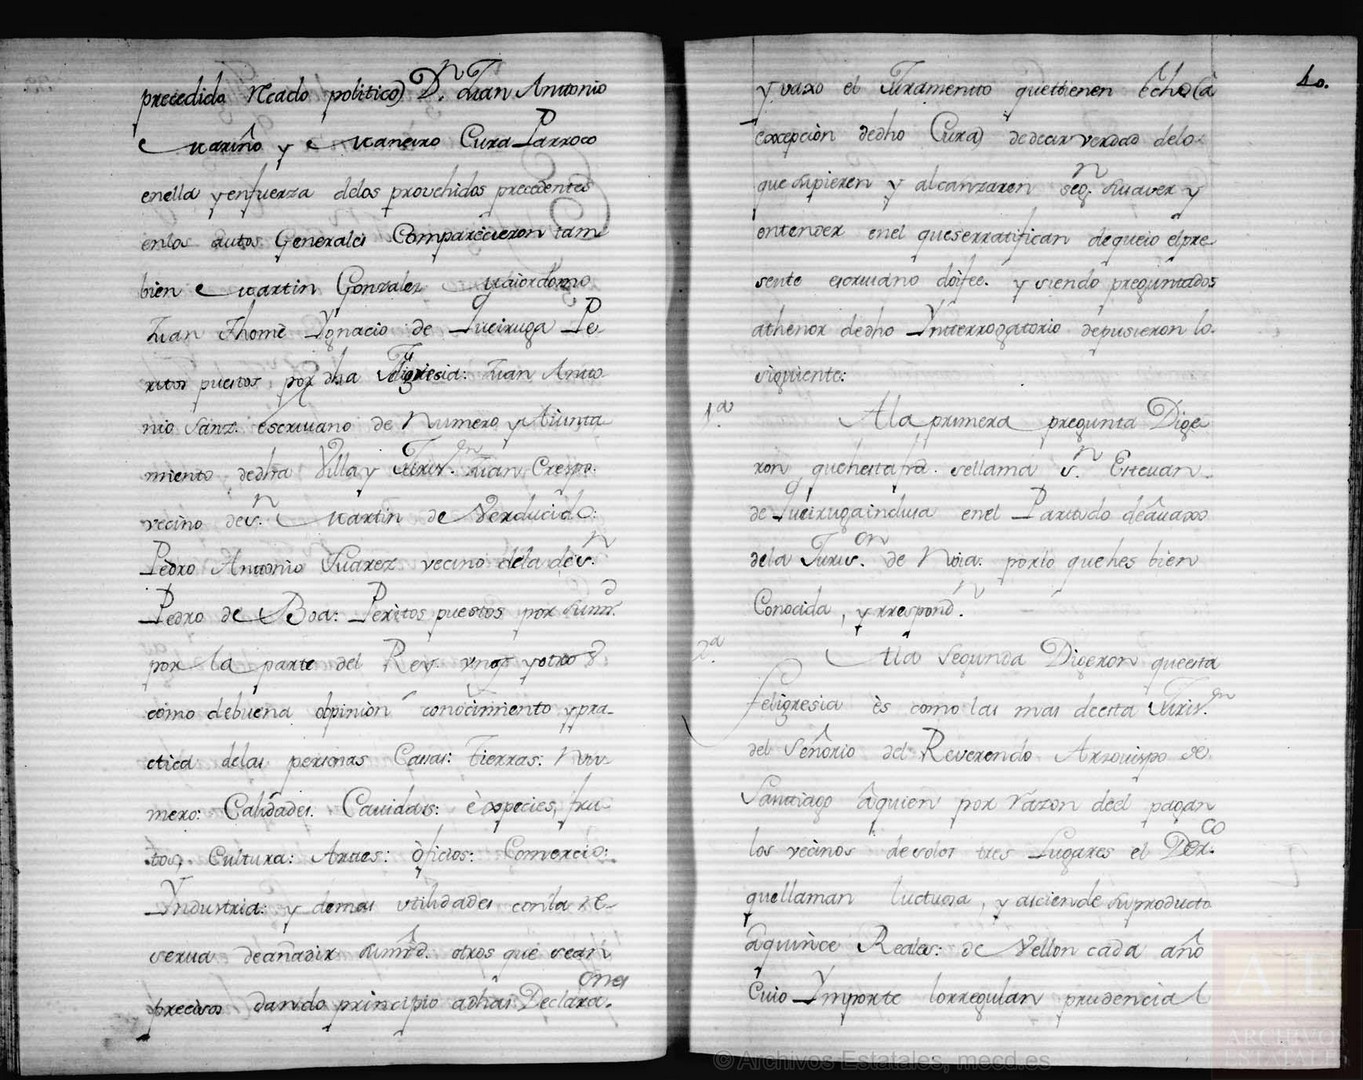 precedido recado politico) D.n Juan Antonio
Mariño y Maneiro Cura Parroco
enella y enfuerza delos provehidos precedentes
enlos autos Generales Comparecieron tam
bien Martin Gonzalez Maiordomo
Juan Thomè Ygnacio de Queiruga Pe
ritos puestos por dha Feligresia: Juan Anto
nio Sanz. escriuano de Numero, y Aiunta
miento dedha Villa y Juris.on Juan Crespo.
vecino de S.n Martin de Verducido:
Pedro Antonio Suarez vecino dela de S.n
Pedro de Boa: Peritos puestos por sum.d
por la parte del Rey. unos y otros
como debuena opinion conocimiento ypra-
ctica delas personas Casas: Tierras: Nu-
mero: Calidades. Cauidas: è especies, fru
tos, Cultura: Artes: òficios: Comercio:
Yndustria: y demas utilidades conla re-
serua deañadir sumrd. otros que sean
precisos dando principio adhas Declara.ones
40.
y vaxo el Juramento quettienen echo (à
excepción dedho Cura) dedecir verdad delo-
que supieren y alcanzaren seg.n suaver y
entender enel queserratifican dequeio elpre-
sente escriuano doifee. y siendo preguntados
athenor dedho Ynterrogatorio depusieron lo
siguiente:
1.a
Ala primera pregunta Dige
ron quehesta frâ. sellama S.n Esteuan
de Queiruga inclusa enel Partido deàuaxo
dela Juris.on de Noia. porlo quehes bien
Conocida, y rrespond.n
2.a
Ala Segunda Digeron queesta
feligresia ès como las mas deesta Juris.on
del Señorio del Reverendo Arzouispo de
Santiago âquien por razon deel pagan
los vecinos de solos tres Lugares el Der.co
quellaman luctuosa, y asciende suproducto
aquince Reales: de Vellon cada año
Cuio Ymporte lorregulan prudencial
© Archivos Estatales, mecd.es
ARCHIVOS
ESTATALES